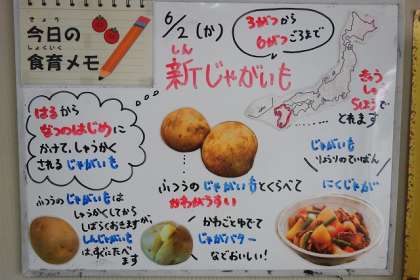 きょう
今日の
しょくいく
食育メモ
6/2 (か)
3がつから
6がつごろまで
しん
新じゃがいも
きゅう
しゅう
ちほうで
とれます
はるから
なつのはじめに
かけて、しゅうかく
されるじゃがいも
ふつうのじゃがいもとくらべて
かわがうすい
じゃがいも
りょうりのていばん
にくじゃが
ふつうのじゃがいもは
しゅうかくしてから
しばらくおきますが、
しんじゃがいも
は、すぐにたべ
ます
かわごとゆでて
じゃがバター
などおいしい!